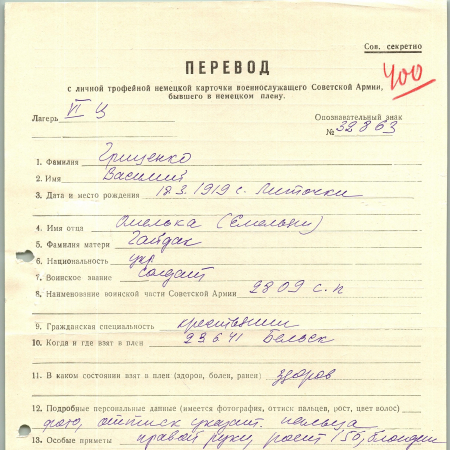 Сов. секретно
400
ПЕРЕВОД
с личной трофейной немецкой карточки военнослужащего Советской Армии,
бывшего в немецком плену.
Лагерь VI Ц
Опознавательный знак
№ 32863
1. Фамилия Гриценко
2. Имя Василий
3. Дата и место рождения 17.3.1919 г. Литочки
4. Имя отца Омелька (Емельян)
5. Фамилия матери Гайдак
6. Национальность укр
7. Воинское звание солдат
8. Наименование воинской части Советской Армии 2809 с. п
9. Гражданская специальность крестьянин
10. Когда и где взят в плен 23.6.41 Бельск
11. В каком состоянии взят в плен (здоров, болен, ранен) здоров
12. Подробные персональные данные (имеется фотография, оттиск пальцев, рост, цвет волос)
фото, оттиск указат. пальца
13. Особые приметы правой руки, рост 156, блондин